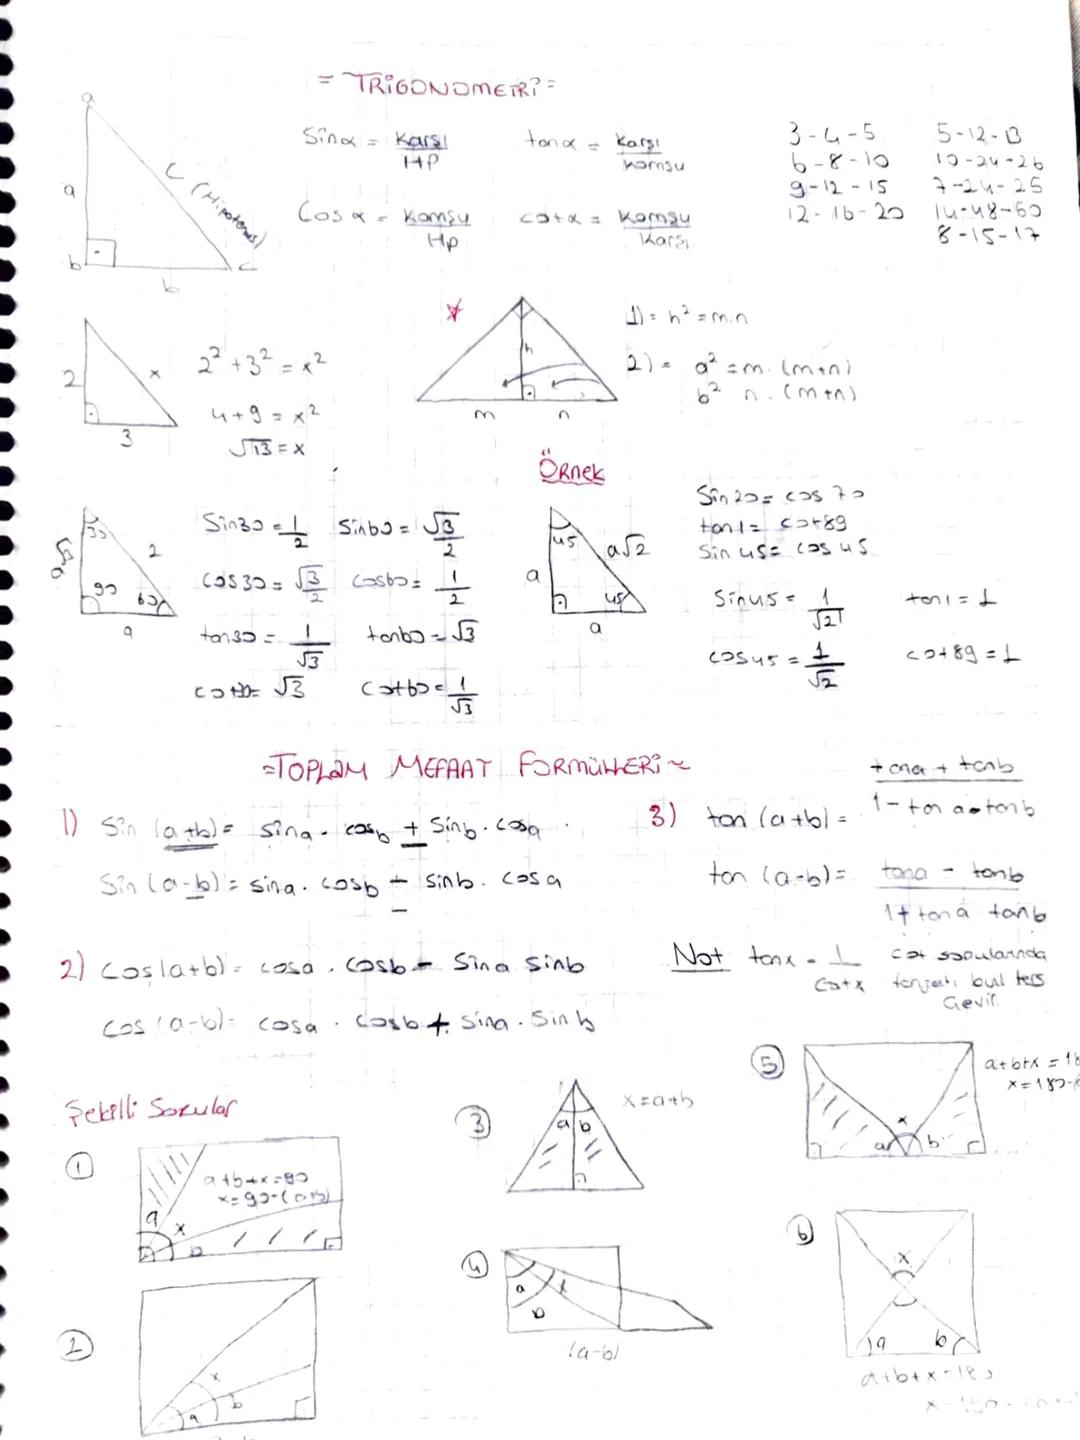 = TRİGONOMETRİ =
a
a
c (Hipotenüs)
b
c
b
Sinα = Karşı / HP
tanα = Karşı / Komşu
Cos α = Komşu / Hp
cotα = Komşu / Karşı
3-4-5
6-8-10
9-12-15
12-16-20
5-12-13
10-24-26
7-24-25
14-48-50
8-15-17
2
x
3
2² + 3² = x²
4+9 = x²
√13 = x
h
m
n
1) = h² = m.n
2) = a² = m. (m+n)
b² n. (m+n)
Örnek
a√3
30
2
90
60
a
Sin30 = 1/2
Sin60 = √3/2
cos30 = √3/2
cos60 = 1/2
tan30 = 1/√3
tan60 = √3
cot30 = √3
cot60 = 1/√3
45
a√2
a
45
a
Sin20 = cos 70
tan1 = cot89
Sin 45 = cos 45
Sin45 = 1/√2
tan1 = 1
cos45 = 1/√2
cot89 = 1
=TOPLAM MEFAAT FORMÜLLERİ~
1) Sin (a+b) = sina . cosb + Sinb . cosa
Sin (a-b) = sina . cosb - sinb. cosa
2) Cos(a+b) = cosa . cosb - Sina Sinb
cos (a-b) = cosa . cosb + sina . Sinb
3) tan (a+b) = tana + tanb / 1- tan a . tan b
tan (a-b) = tana - tanb / 1+ tan a tanb
Not tanx = 1 / Cotx
cot sorularında
tanjantı bul ters
Çevir.
Şekilli Sorular
1
a+b+x=90
x=90-(a+b)
a
x
b
2
x
b
a
3
a b
x=a+b
4
a
x
b
(a-b)
5
x
a
b
a+b+x = 18
x=180-(
6
x
a
b
a+b+x=180